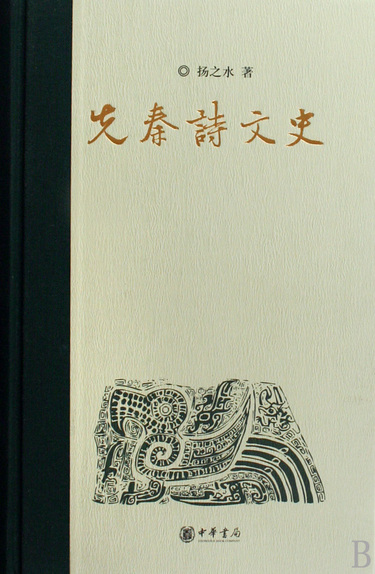 ◎ 扬之水 著
先秦詩文史
中華書局
B